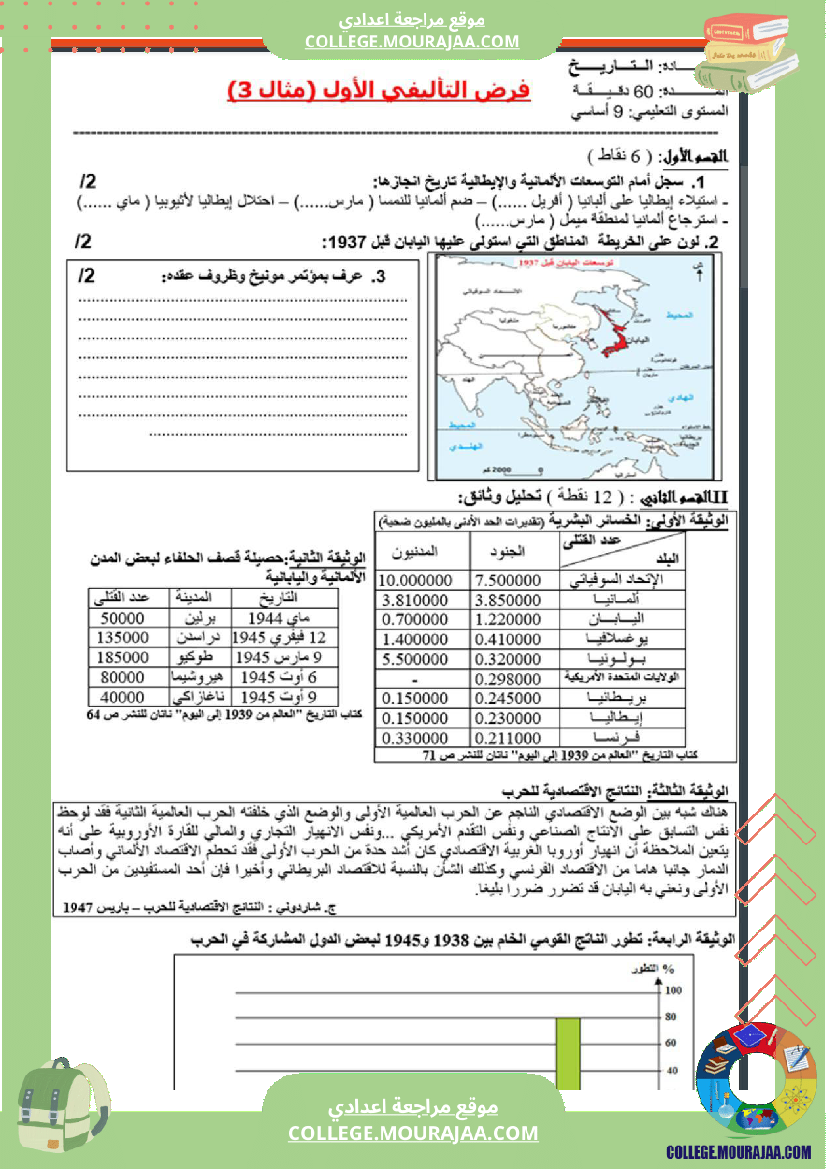 موقع مراجعة اعدادي
COLLEGE.MOURAJAA.COM
ـــادة: الـتـاريـــخ
فرض التأليفي الأول (مثال 3)
ـــدة: 60 دقـيـقـة
المستوى التعليمي: 9 أساسي
القسم الأول: ( 6 نقاط )
1. سجل أمام التوسعات الألمانية والإيطالية تاريخ انجازها: /2
ـ استيلاء إيطاليا على ألبانيا ( أفريل ......) – ضم ألمانيا للنمسا ( مارس......) – احتلال إيطاليا لأثيوبيا ( ماي ......)
ـ استرجاع ألمانيا لمنطقة ميمل ( مارس......)
2. لون على الخريطة المناطق التي استولى عليها اليابان قبل 1937: /2
توسعات اليابان قبل 1937
ش
الاتحـــاد السوفياتي
منغوليا
منشوريا
اليابان
المحيط
الهادي
الهند
المحيط
الهندي
خط الاستواء
سومطرا
أستراليا
2000 كم 0
3. عرف بمؤتمر مونيخ وظروف عقده: /2
II القسم الثاني : ( 12 نقطة ) تحليل وثائق:
الوثيقة الأولى: الخسائر البشرية (تقديرات الحد الأدنى بالمليون ضحية)
عدد القتلى
البلد الجنود المدنيون
الإتحاد السوفياتي 7.500000 10.000000
ألمـانيــا 3.850000 3.810000
اليـابــان 1.220000 0.700000
يوغسلافيـا 0.410000 1.400000
بـولـونيـا 0.320000 5.500000
الولايات المتحدة الأمريكية 0.298000 -
بريـطانيـا 0.245000 0.150000
إيـطاليـا 0.230000 0.150000
فـرنسـا 0.211000 0.330000
كتاب التاريخ "العالم من 1939 إلى اليوم" ناتان للنشر ص 71
الوثيقة الثانية:حصيلة قصف الحلفاء لبعض المدن
الألمانية واليابانية
التاريخ المدينة عدد القتلى
ماي 1944 برلين 50000
12 فيفري 1945 دراسدن 135000
9 مارس 1945 طوكيو 185000
6 أوت 1945 هيروشيما 80000
9 أوت 1945 ناغازاكي 40000
كتاب التاريخ "العالم من 1939 إلى اليوم" ناتان للنشر ص 64
الوثيقة الثالثة: النتائج الاقتصادية للحرب
هناك شبه بين الوضع الاقتصادي الناجم عن الحرب العالمية الأولى والوضع الذي خلفته الحرب العالمية الثانية فقد لوحظ
نفس التسابق على الانتاج الصناعي ونفس التقدم الأمريكي ...ونفس الانهيار التجاري والمالي للقارة الأوروبية على أنه
يتعين الملاحظة أن انهيار أوروبا الغربية الاقتصادي كان أشد حدة من الحرب الأولى فقد تحطم الاقتصاد الألماني وأصاب
الدمار جانبا هاما من الاقتصاد الفرنسي وكذلك الشأن بالنسبة للاقتصاد البريطاني وأخيرا فإن أحد المستفيدين من الحرب
الأولى ونعني به اليابان قد تضرر ضررا بليغا.
ج. شاردوني : النتائج الاقتصادية للحرب – باريس 1947
الوثيقة الرابعة: تطور الناتج القومي الخام بين 1938 و1945 لبعض الدول المشاركة في الحرب
% التطور
100
80
60
40
موقع مراجعة اعدادي
COLLEGE.MOURAJAA.COM
COLLEGE.MOURAJAA.COM